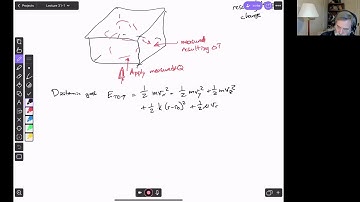 Projects
Lecture 31-1
change
measured
resulting ΔT
Apply measured Q
Diatomic gas E_TOT = 1/2 mv_x² + 1/2 mv_y² + 1/2 mv_z²
+ 1/2 k (r-r_0)²